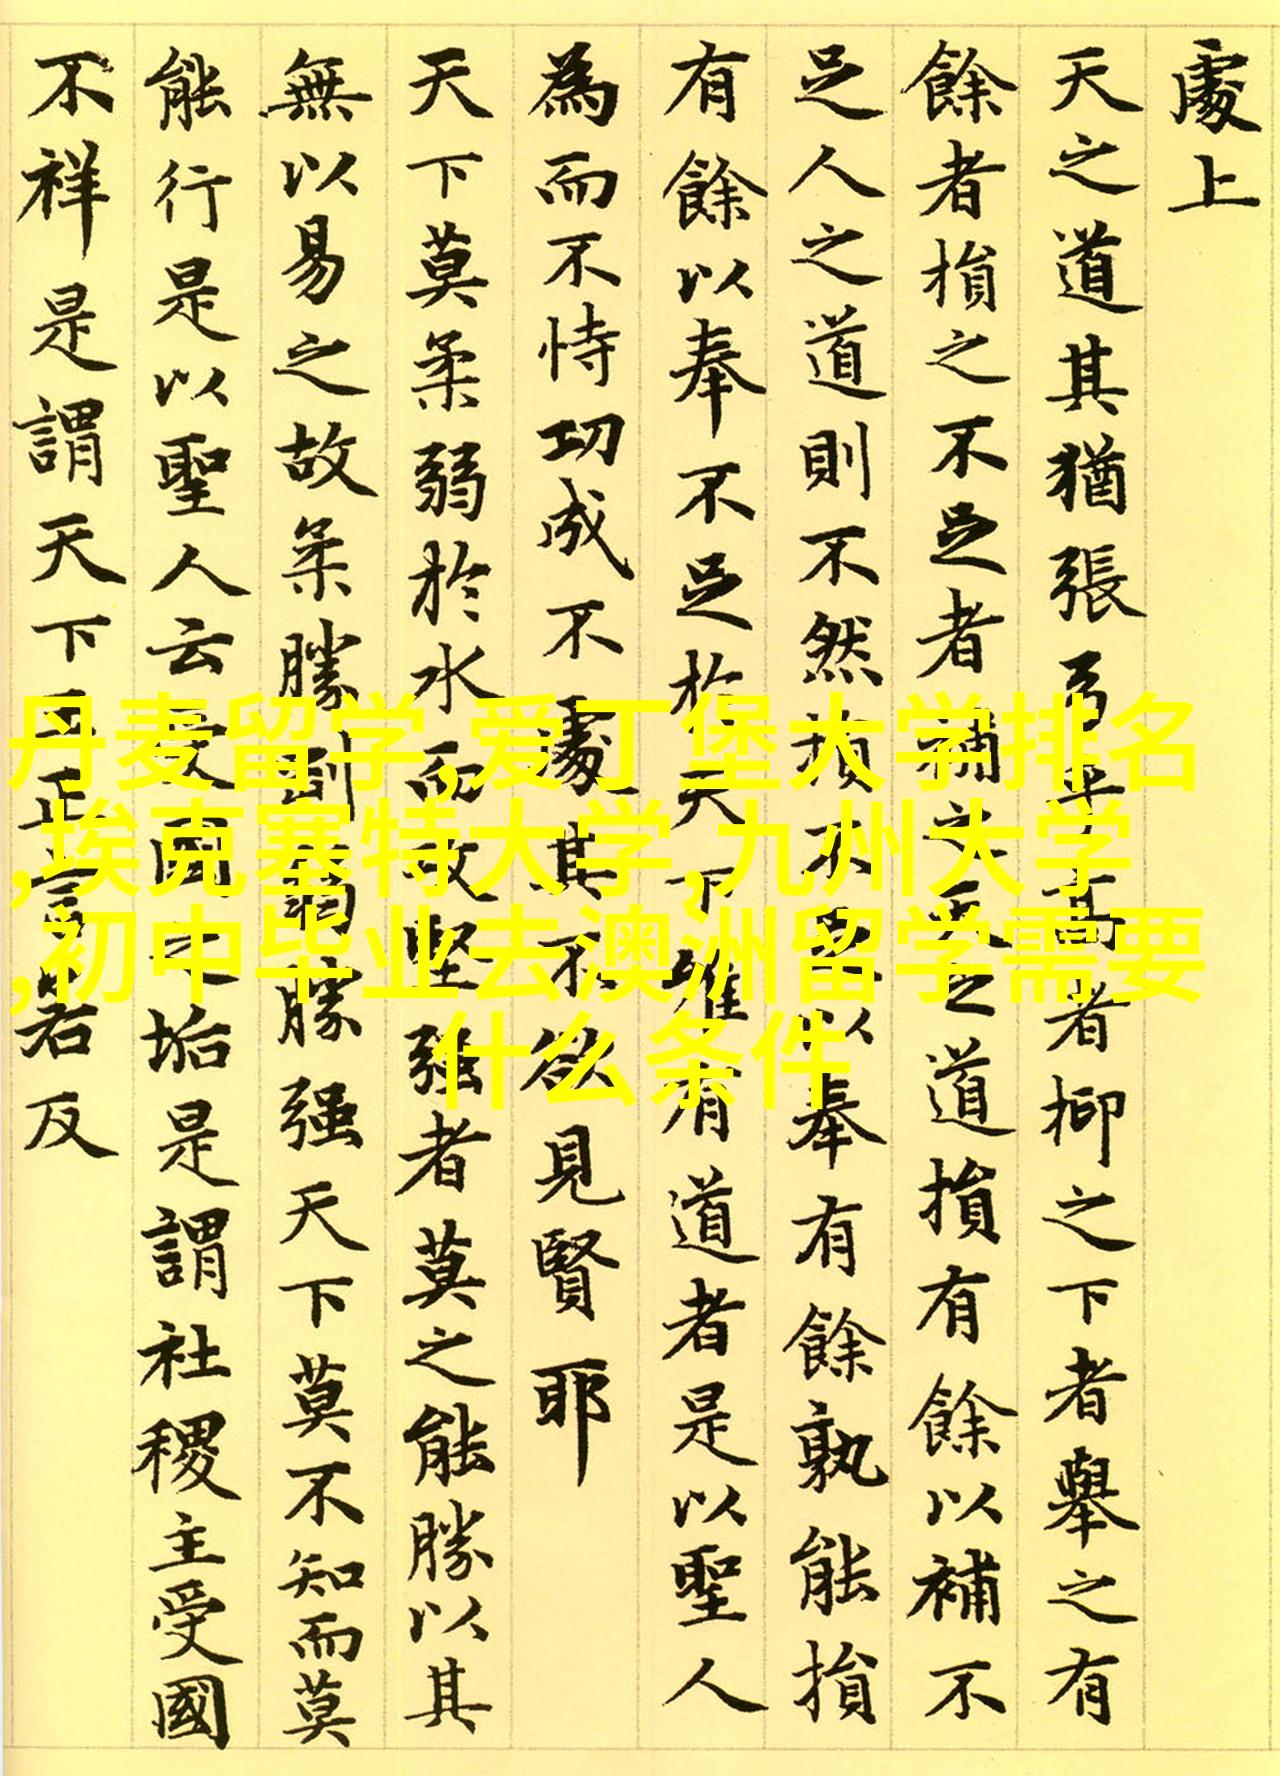 處上
天之道其猶張弓乎高者抑之下者舉之有
餘者損之不足者補之天之道損有餘以補不
足人之道則不然損不足以奉有餘孰能損
有餘以奉不足於天下唯有道者是以聖人
為而不恃功成不處其不欲見賢耶
天下莫柔弱於水而攻堅强者莫之能勝以其
無以易之故柔勝剛弱勝强天下莫不知而莫
能行是以聖人云受國之垢是謂社稷主受國
不祥是謂天下王正言若反
丹麦留学,爱丁堡大学排名
,埃克塞特大学,九州大学
,初中毕业去澳洲留学需要
什么条件